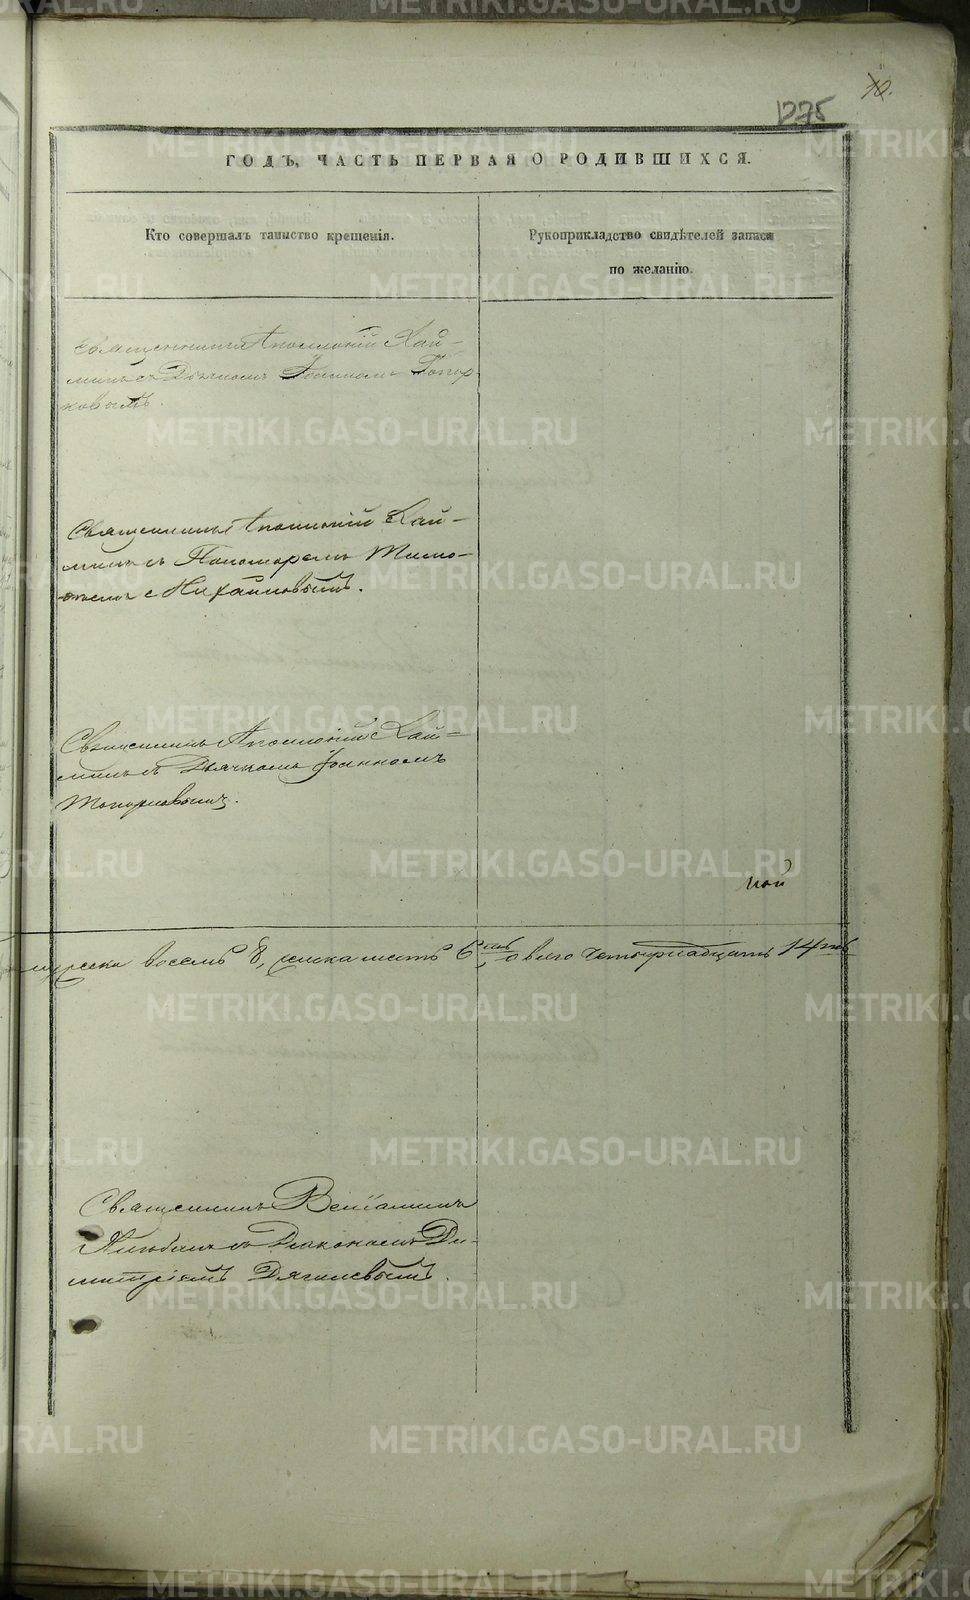 1275
10.
ГОДЪ, ЧАСТЬ ПЕРВАЯ О РОДИВШИХСЯ.
Кто совершалъ таинство крещенія.
Рукоприкладство свидѣтелей записи
по желанію.
Священникъ Аполлоній Кай-
минъ съ Дьячкомъ Іоанномъ Топор-
ковымъ.
Священникъ Аполлоній Кай-
минъ съ Пономаремъ Тимо-
Михайловымъ.
Священникъ Аполлоній Кай-
минъ съ Дьячкомъ Іоанномъ
Топорковымъ.
восемь 8, женска шесть 6 обоего четырнадцать 14ть
Священникъ Веніаминъ
съ Діакономъ Ди-
митріемъ Дягилевымъ.
METRIKI.GASO-URAL.RU